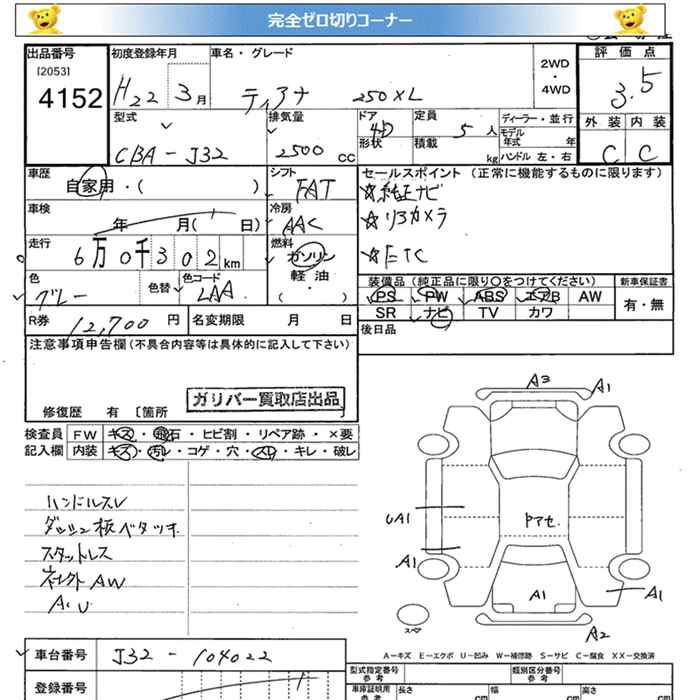 完全ゼロ切りコーナー
出品番号 初度登録年月 車名・グレード 評価点
[2053] 4152 H22 3月 ティアナ 250XL 2WD・4WD 3.5
型式 排気量 ドア 定員 ディーラー・並行 外装 内装
CBA-J32 2500 CC 4D 5人 モデル年式 年 C C
形状 積載 kg ハンドル 左・右
車歴 シフト セールスポイント (正常に機能するものに限ります)
自家用・( ) FAT ☆純正ナビ
車検 冷房 ☆リヤカメラ
年 月( 日) AAC
走行 燃料 ☆ETC
6万0千302km ガソリン
色 色替 色コード 軽油・( ) 装備品(純正品に限り○をつけてください) 新車保証書
グレー LAA PS PW ABS エアB AW 有・無
R券 12,700円 名変期限 月 日 SR ナビ TV カワ
注意事項申告欄(不具合内容等は具体的に記入して下さい) 後日品
ガリバー買取店出品
修復歴 有 [箇所 ]
検査員 FW キズ・飛石・ヒビ割・リペア跡・×要
記入欄 内装 キズ・汚レ・コゲ・穴・スリ・キレ・破レ
A3 A1
ハンドルスレ
ダッシュ板ベタツキ
UA1 ドアセ.
スタットレス
A1
社外AW
A1 A1
AU
スペア A2
A-キズ E-エクボ U-凹み W-補修跡 S-サビ C-腐食 XX-交換済
車台番号 J32-104022 型式指定番号 類別区分番号
登録番号 車庫証明用参考 長さ cm 幅 cm 高さ cm